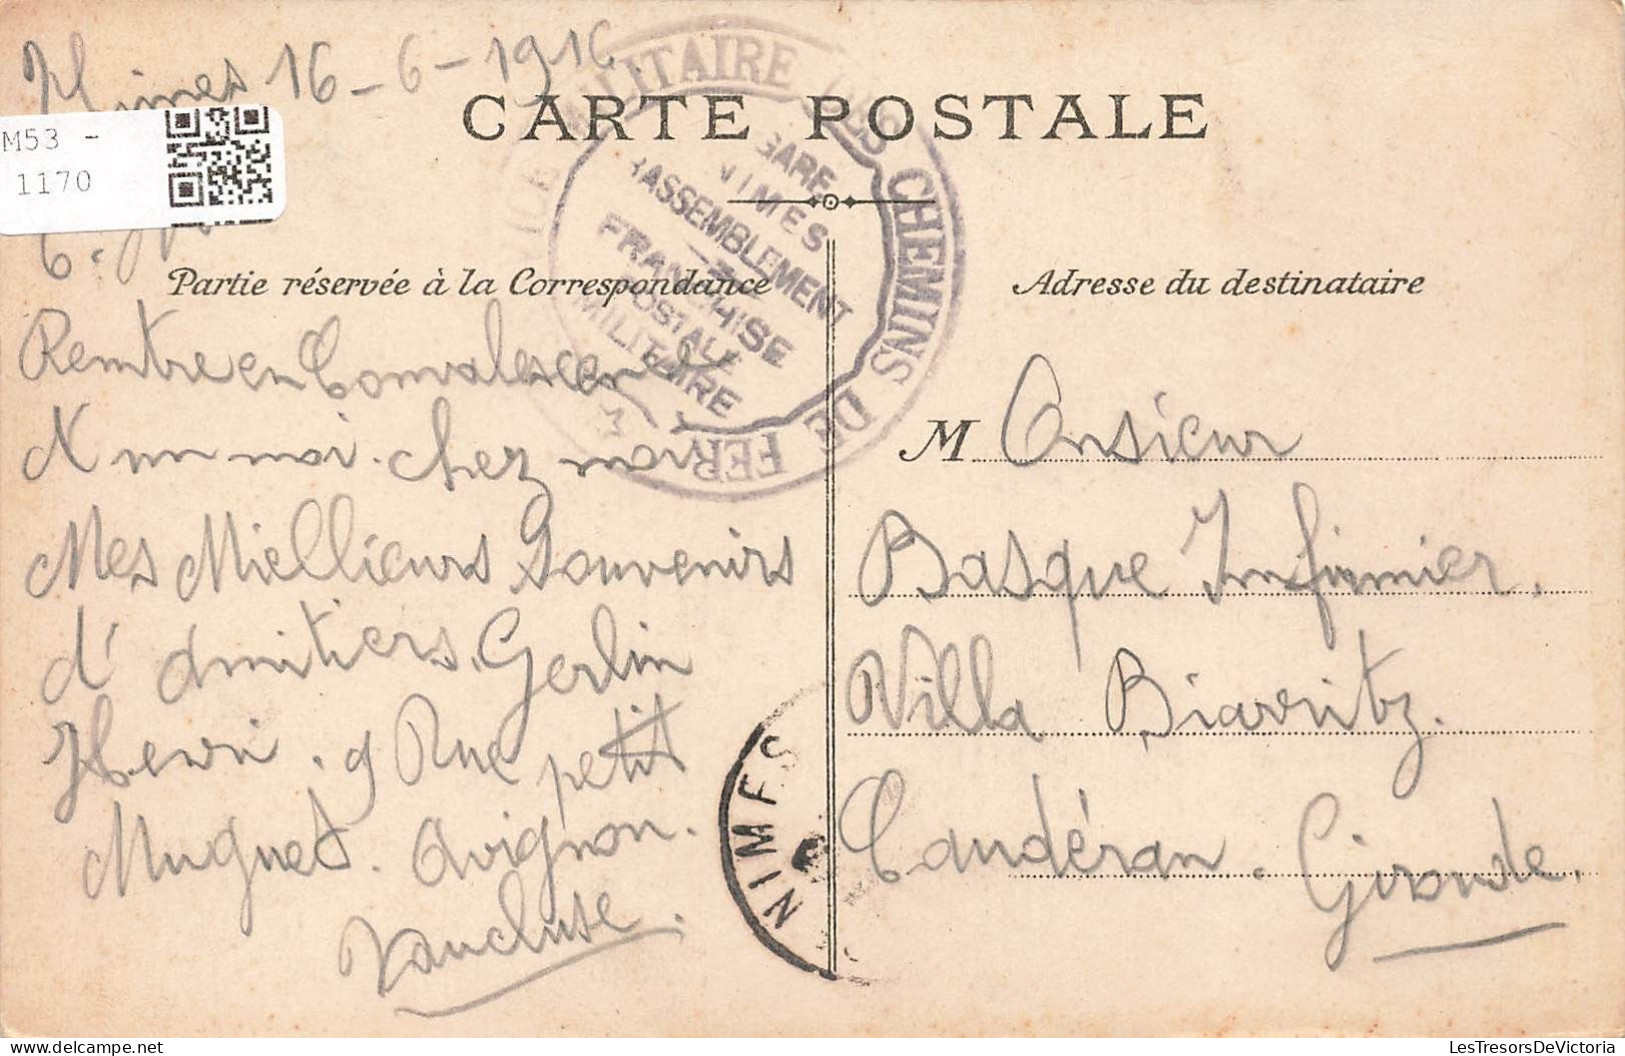 Nimes 16-6-1916.
CARTE POSTALE
M53 -
1170
Partie réservée à la Correspondance
Rentre en Convalescence
d'un moi. chez moi
Mes Millieurs Souvenirs
d'amitiers. Gerlin
Henri. 9 Rue petit
Muguet. Avignon.
Vaucluse.
MILITAIRE DES CHEMINS DE FER
GARE
NIMES
RASSEMBLEMENT
FRANCHISE
POSTALE
MILITAIRE
NIMES
Adresse du destinataire
M Onsieur
Basque Infirmier.
Villa Biarritz.
Caudéran. Gironde.
LesTresorsDeVictoria